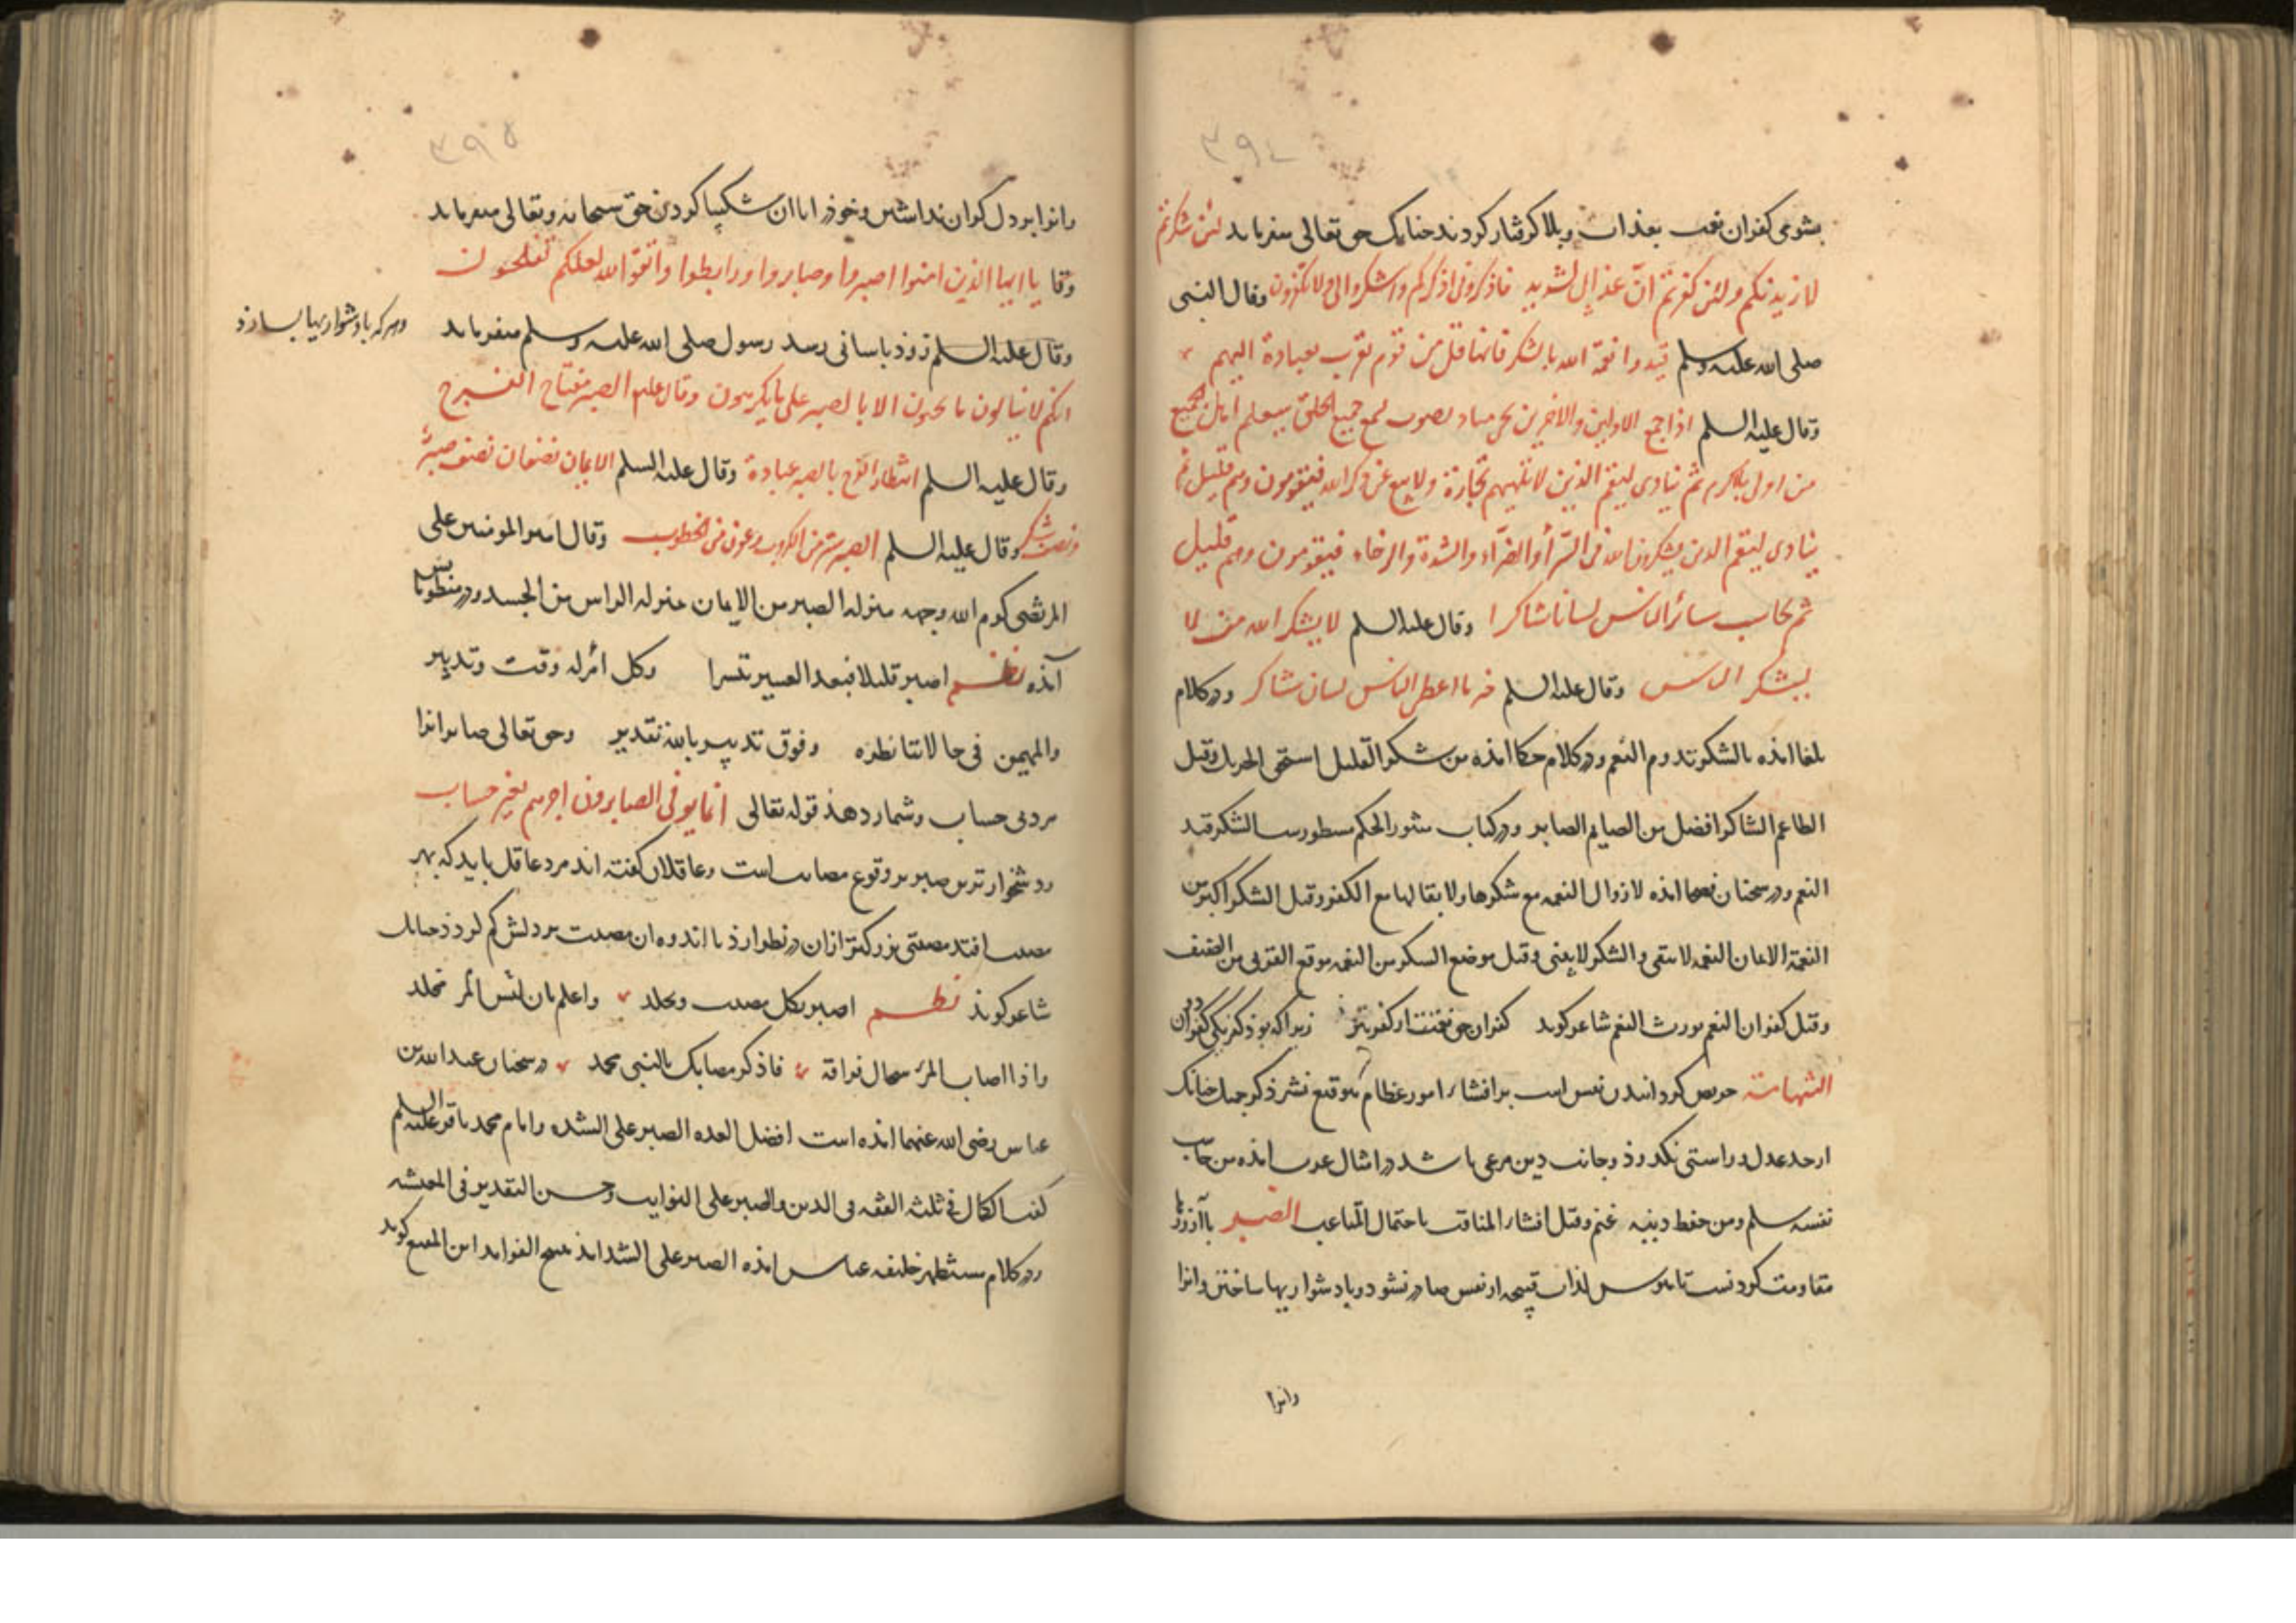 ۳۹۴
بشومی کفران نعمت بعذاب و بلا کرفتار کردند چنانک حق تعالی میفرماید لئن شکرتم
لازیدنکم ولئن کفرتم ان عذابی لشدید فاذکرونی اذکرکم واشکروا لی ولا تکفرون وقال النبی
صلی الله علیه وسلم قیدوا نعمة الله بالشکر فانها قل من قوم
وقال علیه السلم اذا جمع الاولین والاخرین یسمع جمیع الخلق سیعلم اهل الجمع
من اولی بالکرم ثم ینادی لیقم الذین لا تلهیهم تجارة ولا بیع عن ذکر الله فیقومون وهم قلیل ثم
ینادی لیقم الذین یشکرون الله فی السرآء والضرآء والشدة والرخاء فیقومون وهم قلیل
ثم یحاسب سائر الناس لسانا شاکرا وقال علیه السلم لا یشکر الله من لا
یشکر الناس وقال علیه السلم خیر ما اعطی الناس لسان شاکر ودر کلام
بلغا امذه بالشکر تدوم النعم ودر کلام حکما امذه من شکر القلیل استحق الجزیل وقیل
الطاعم الشاکر افضل من الصایم الصابر ودر کتاب منثور الحکم مسطورست الشکر قید
النعم ودر سخنان امذه لا زوال النعمه مع شکرها ولا بقا لها مع الکفر وقیل الشکر اکبر من
النعمة لان النعمه لا تبقی والشکر لا یفنی وقیل موضع الشکر من النعمه موقع القری من الضیف
وقیل کفران النعم یورث النقم شاعر کوید کفران نعمت از کفر بتر زیرا که بوذ کفر یکی کفران دو
الشهامة حریص کردانیدن نفس است بر اقتناء امور عظام بتوقیع نشر ذکر جمیل چنانک
از حد عدل و راستی نکذرذ و جانب دین مرعی باشد در امثال عرب امذه من حاسب
نفسه سلم ومن حفظ دینه غنم وقیل المناقب باحتمال المتاعب الصبر با آرزوها
مقاومت کردنست تا لذات قبیحه از نفس صادر نشود و با دشواریها ساختن وانرا
وانرا
۳۹۵
وانرا بر دل کران نداشتن و خوذ را با ان شکیبا کردن حق سبحانه وتعالی میفرماید
وقا یا ایها الذین امنوا اصبروا وصابروا ورابطوا واتقوا الله لعلکم تفلحون
وقال علیه السلم زود باسانی رسد رسول صلی الله علیه وسلم میفرماید
وهرکه با دشواریها بسازذ
انکم لا تنالون ما تحبون الا بالصبر علی ما یکرهون وقال علیه الصبر مفتاح الفرج
وقال علیه السلم انتظار الفرج بالصبر عبادة وقال علیه السلم الایمان نصفان نصف صبر
ونصف شکر وقال علیه السلم الصبر ستر من الکروب وعون من الخطوب وقال امیر المومنین علی
المرتضی کرم الله وجهه منزله الصبر من الایمان منزله الراس من الجسد ودر منظومات
آمذه نظم اصبر قلیلا فبعد العسیر تیسرا وکل امر له وقت وتدبیر
والمهیمن فی حالاتنا نظره وفوق تدبیرنا لله تقدیر وحق تعالی صابرانرا
مزد بی حساب وشمار دهذ قوله تعالی انما یوفی الصابرون اجرهم بغیر حساب
و دشخوارترین صبر بر وقوع مصایب است وعاقلان کفته اند مرد عاقل باید که بهر
مصیبت افتد مصیبتی بزرکتر ازان در نظر اراذ تا اندوه ان مصیبت بر دلش کم کردذ چنانک
شاعر کویذ نظم اصبر بکل مصیبت وتجلد واعلم بان لیس المرء تخلد
واذا اصاب المرء فراقة فاذکر مصابک بالنبی محمد در سخنان عبد الله بن
عباس رضی الله عنهما امذه است افضل العده الصبر علی الشده وامام محمد باقر علیه السلم
کفت الکمال فی ثلثه الفقه فی الدین والصبر علی النوایب وحسن التقدیر فی المعیشه
ودر کلام مستظهر خلیفه عباسی امذه الصبر علی الشداید ینتج الفواید ابن المقفع کوید